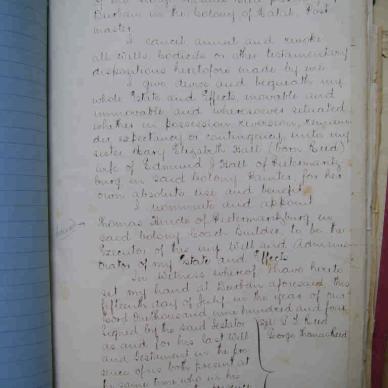 Durban in the Colony of Natal, Post
master.
I cancel annul and revoke
all Wills, Codicils or other testamentary
dispositions heretofore made by me
I give devise and bequeath my
whole Estate and Effects, movable and
immovable and wheresoever situated
whether in possession reversion, remain
der expectancy or contingency, unto my
sister Mary Elizabeth Hall (born Reed)
wife of Edmund J Hall of Pietermaritz
burg in said Colony Painter for her
own absolute use and benefit
I nominate and appoint
Thomas Hinde of Pietermaritzburg in
said Colony Coach Builder to be the
Executor of this my Will and Adminis
trator of my Estate and Effects
In Witness whereof I have hereto
set my hand at Durban aforesaid this
fifteenth day of July in the year of our
Lord One thousand nine hundred and four
Signed by the said Testator
as and for his last Will
and Testament in the pre
sence of us both present at
the same time who in his
Reed
George Thomas Reed